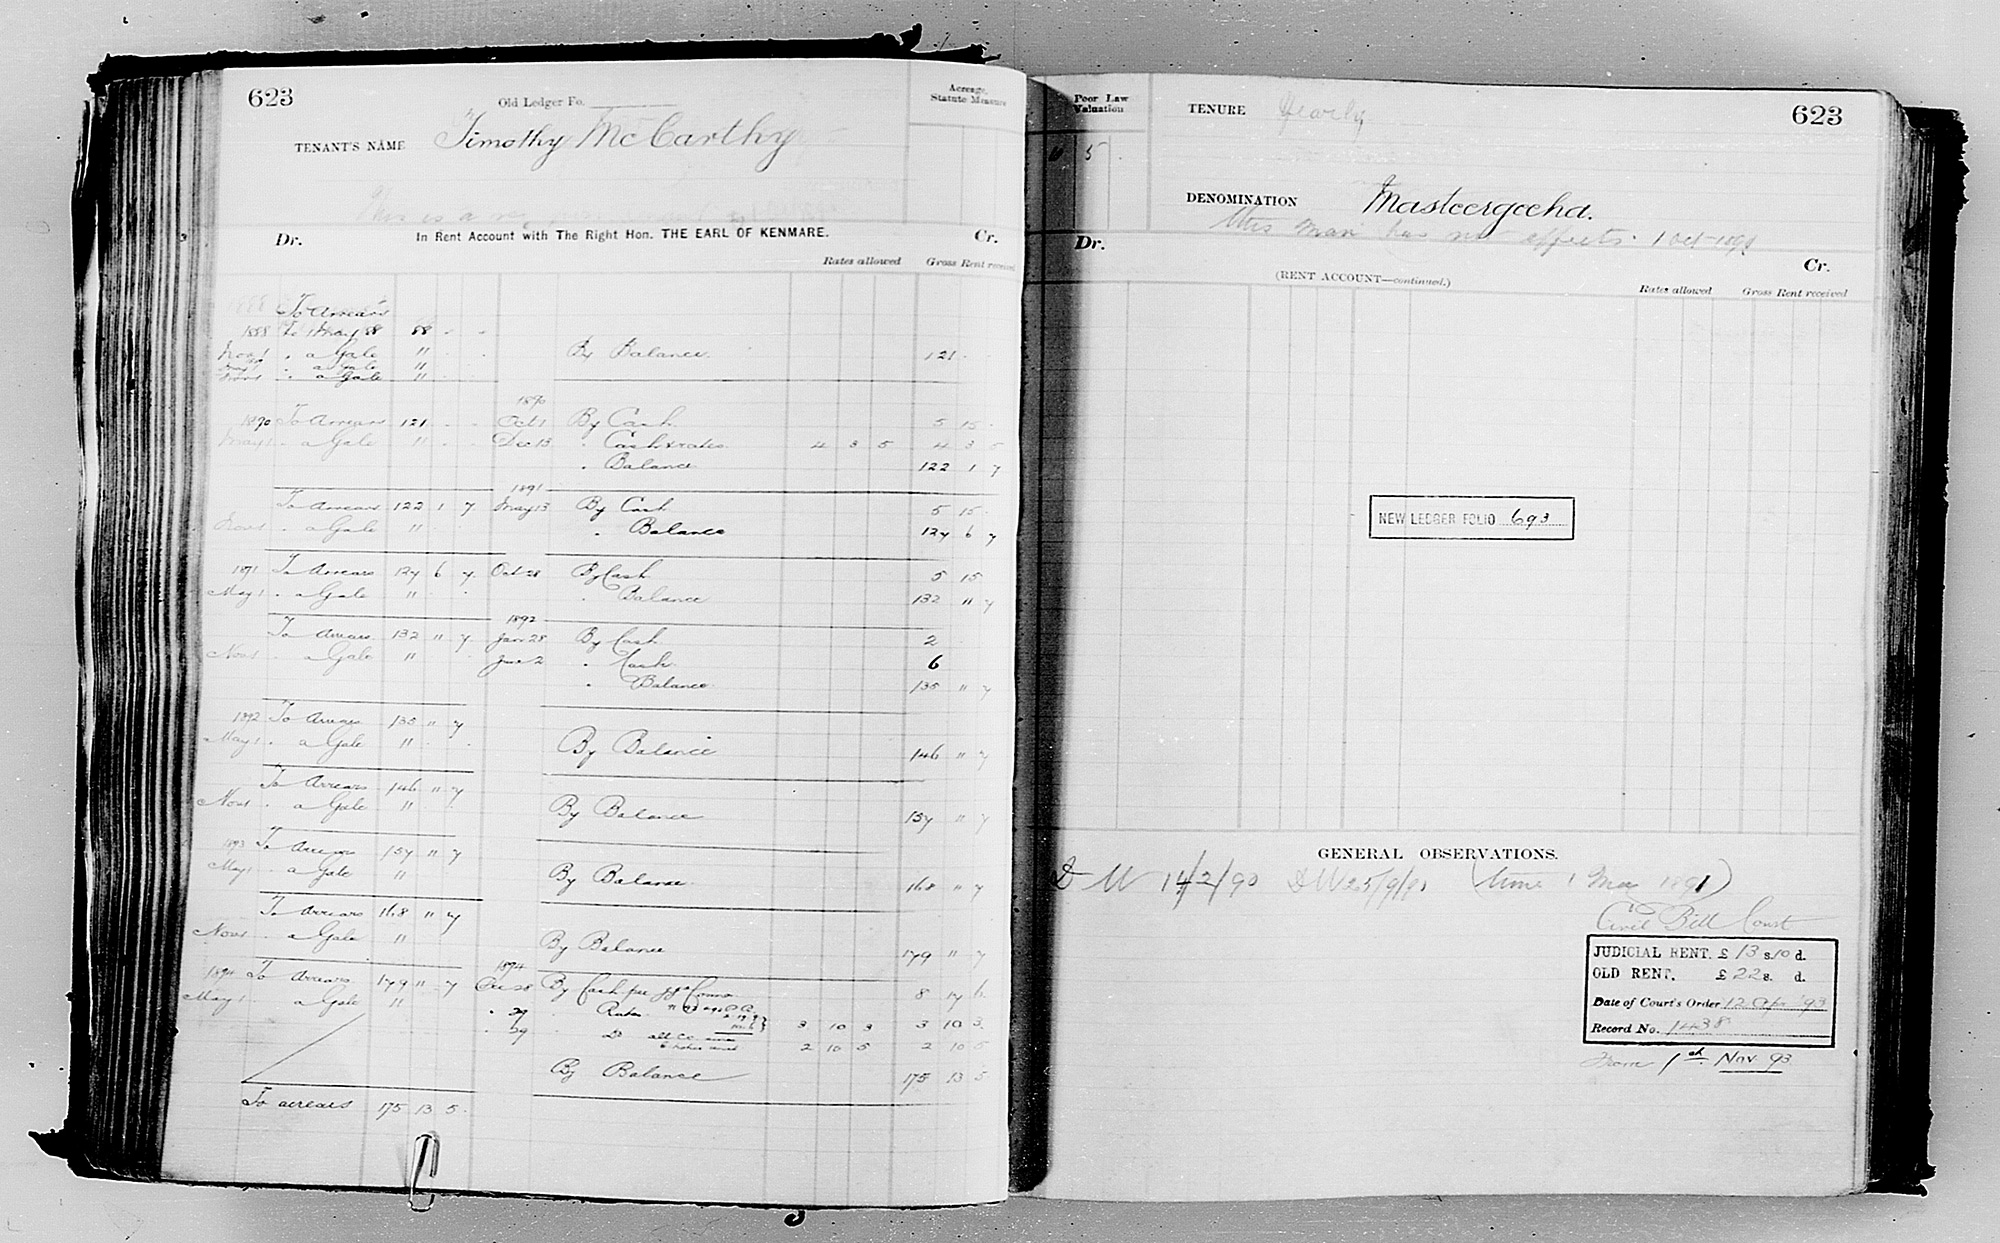 623
Old Ledger Fo.
TENANT'S NAME Timothy McCarthy
Acreage, Statute Measure
This is a
Dr. In Rent Account with The Right Hon. THE EARL OF KENMARE. Cr.
Rates allowed Gross Rent received
To Arrears
1888 To 1 May 88 88 - -
Nov 1 " a Gale 11 By Balance 121
May 1 " a Gale 11
Nov 1 " a Gale 11
1890
1890 To Arrears 121 - - Oct 1 By Cash 5 15
May 1 " a Gale 11 - - Dec 13 " Cash & rates 4 3 5 4 3 5
" Balance 122 1 7
1891
To Arrears 122 1 7 May 13 By Cash 5 15
Nov 1 " a Gale 11 " Balance 127 6 7
1891 To Arrears 127 6 7 Oct 28 By Cash 5 15
May 1 " a Gale 11 " Balance 132 11 7
1892
To Arrears 132 11 7 Jan 28 By Cash 2
Nov 1 " a Gale 11 June 2 " Cash 6
" Balance 135 11 7
1892 To Arrears 135 11 7
May 1 " a Gale 11 By Balance 146 11 7
To Arrears 146 11 7
Nov 1 " a Gale 11 By Balance 157 11 7
1893 To Arrears 157 11 7
May 1 " a Gale 11 By Balance 168 11 7
To Arrears 168 11 7
Nov 1 " a Gale 11 By Balance 179 11 7
1894
1894 To Arrears 179 11 7 Dec 28 By Cash per 8 17 6
May 1 a Gale 11 " 29 " Rates 3 10 3 3 10 3
" 29 " Do 2 10 5 2 10 5
By Balance 175 13 5
To arrears 175 13 5
Poor Law Valuation
5
TENURE Yearly
623
DENOMINATION Masteergeeha.
This man has no effects. 1 Oct 1891
Dr. Cr.
(RENT ACCOUNT—continued.)
Rates allowed Gross Rent received
NEW LEDGER FOLIO 693
GENERAL OBSERVATIONS.
D W 14/2/90 D W 25/9/91 (time 1 May 1891)
Civil Bill Court
JUDICIAL RENT. £ 13 s. 10 d.
OLD RENT. £ 22 s. d.
Date of Court's Order 12 Apr '93
Record No. 1438
From 1st Nov 93